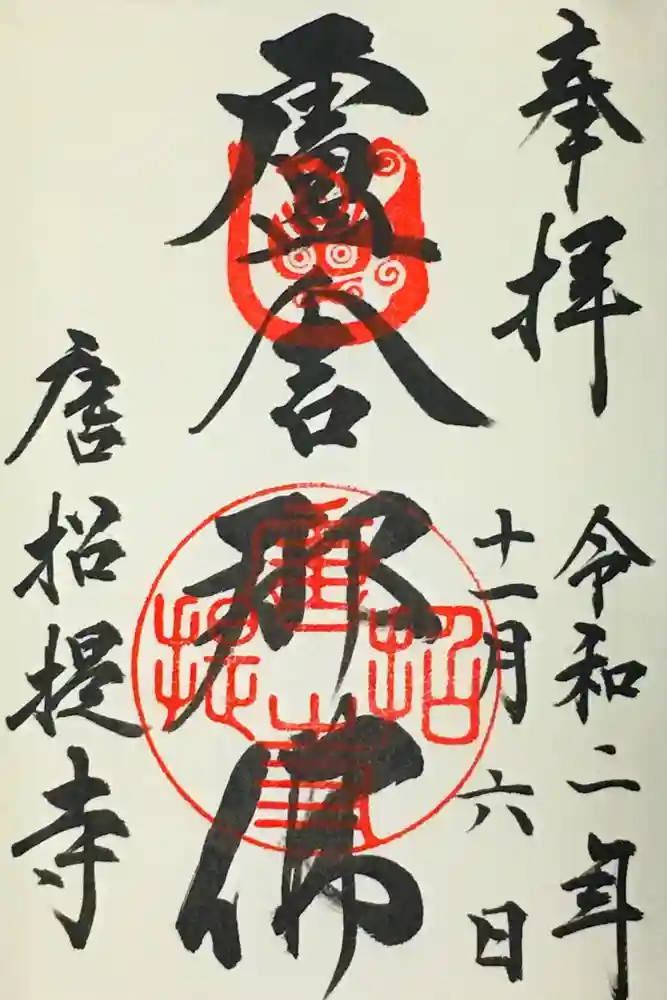 奉拝
令和二年
十一月六日
盧舎那佛
唐招提寺
唐招提寺